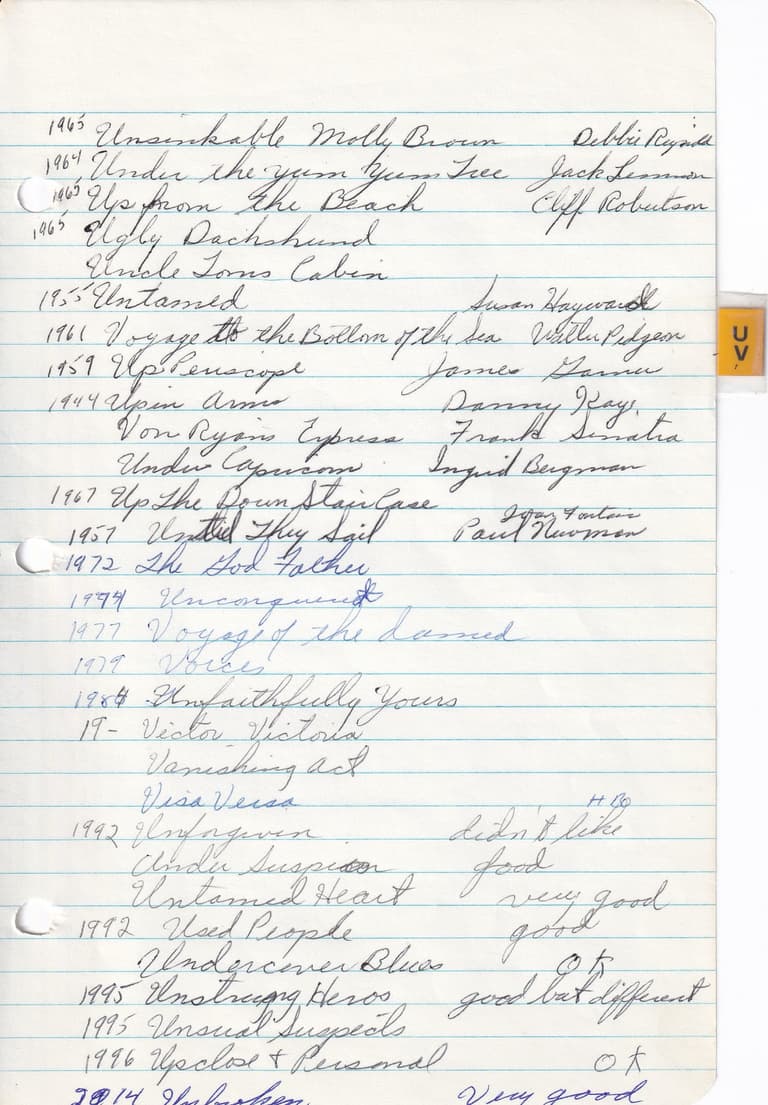 1965 Unsinkable Molly Brown Debbie Reynolds
1964 Under the yum yum Tree Jack Lemmon
1965 Up from the Beach Cliff Robertson
1965 Ugly Dachshund
Uncle Toms Cabin
1955 Untamed Susan Hayward
1961 Voyage to the Bottom of the Sea Walter Pidgeon
UV
1959 Up Periscope James Garner
1944 Up in Arms Danny Kaye
Von Ryans Express Frank Sinatra
Under Capricorn Ingrid Bergman
1967 Up The Down StairCase
Joan Fontain
1957 Until They Sail Paul Newman
1972 The God Father
Unconquered
1977 Voyage of the damed
1979 Voices
1984 Unfaithfully Yours
19- Victor Victoria
Vanishing act
Visa Versa HBO
1992 Unforgiven didn't like
Under Suspicion good
Untamed Heart very good
1992 Used People good
Undercover Blues OK
1995 Unstrung Heros good but different
1995 Unsual Suspects
1996 Upclose + Personal OK
2014 Unbroken Very good